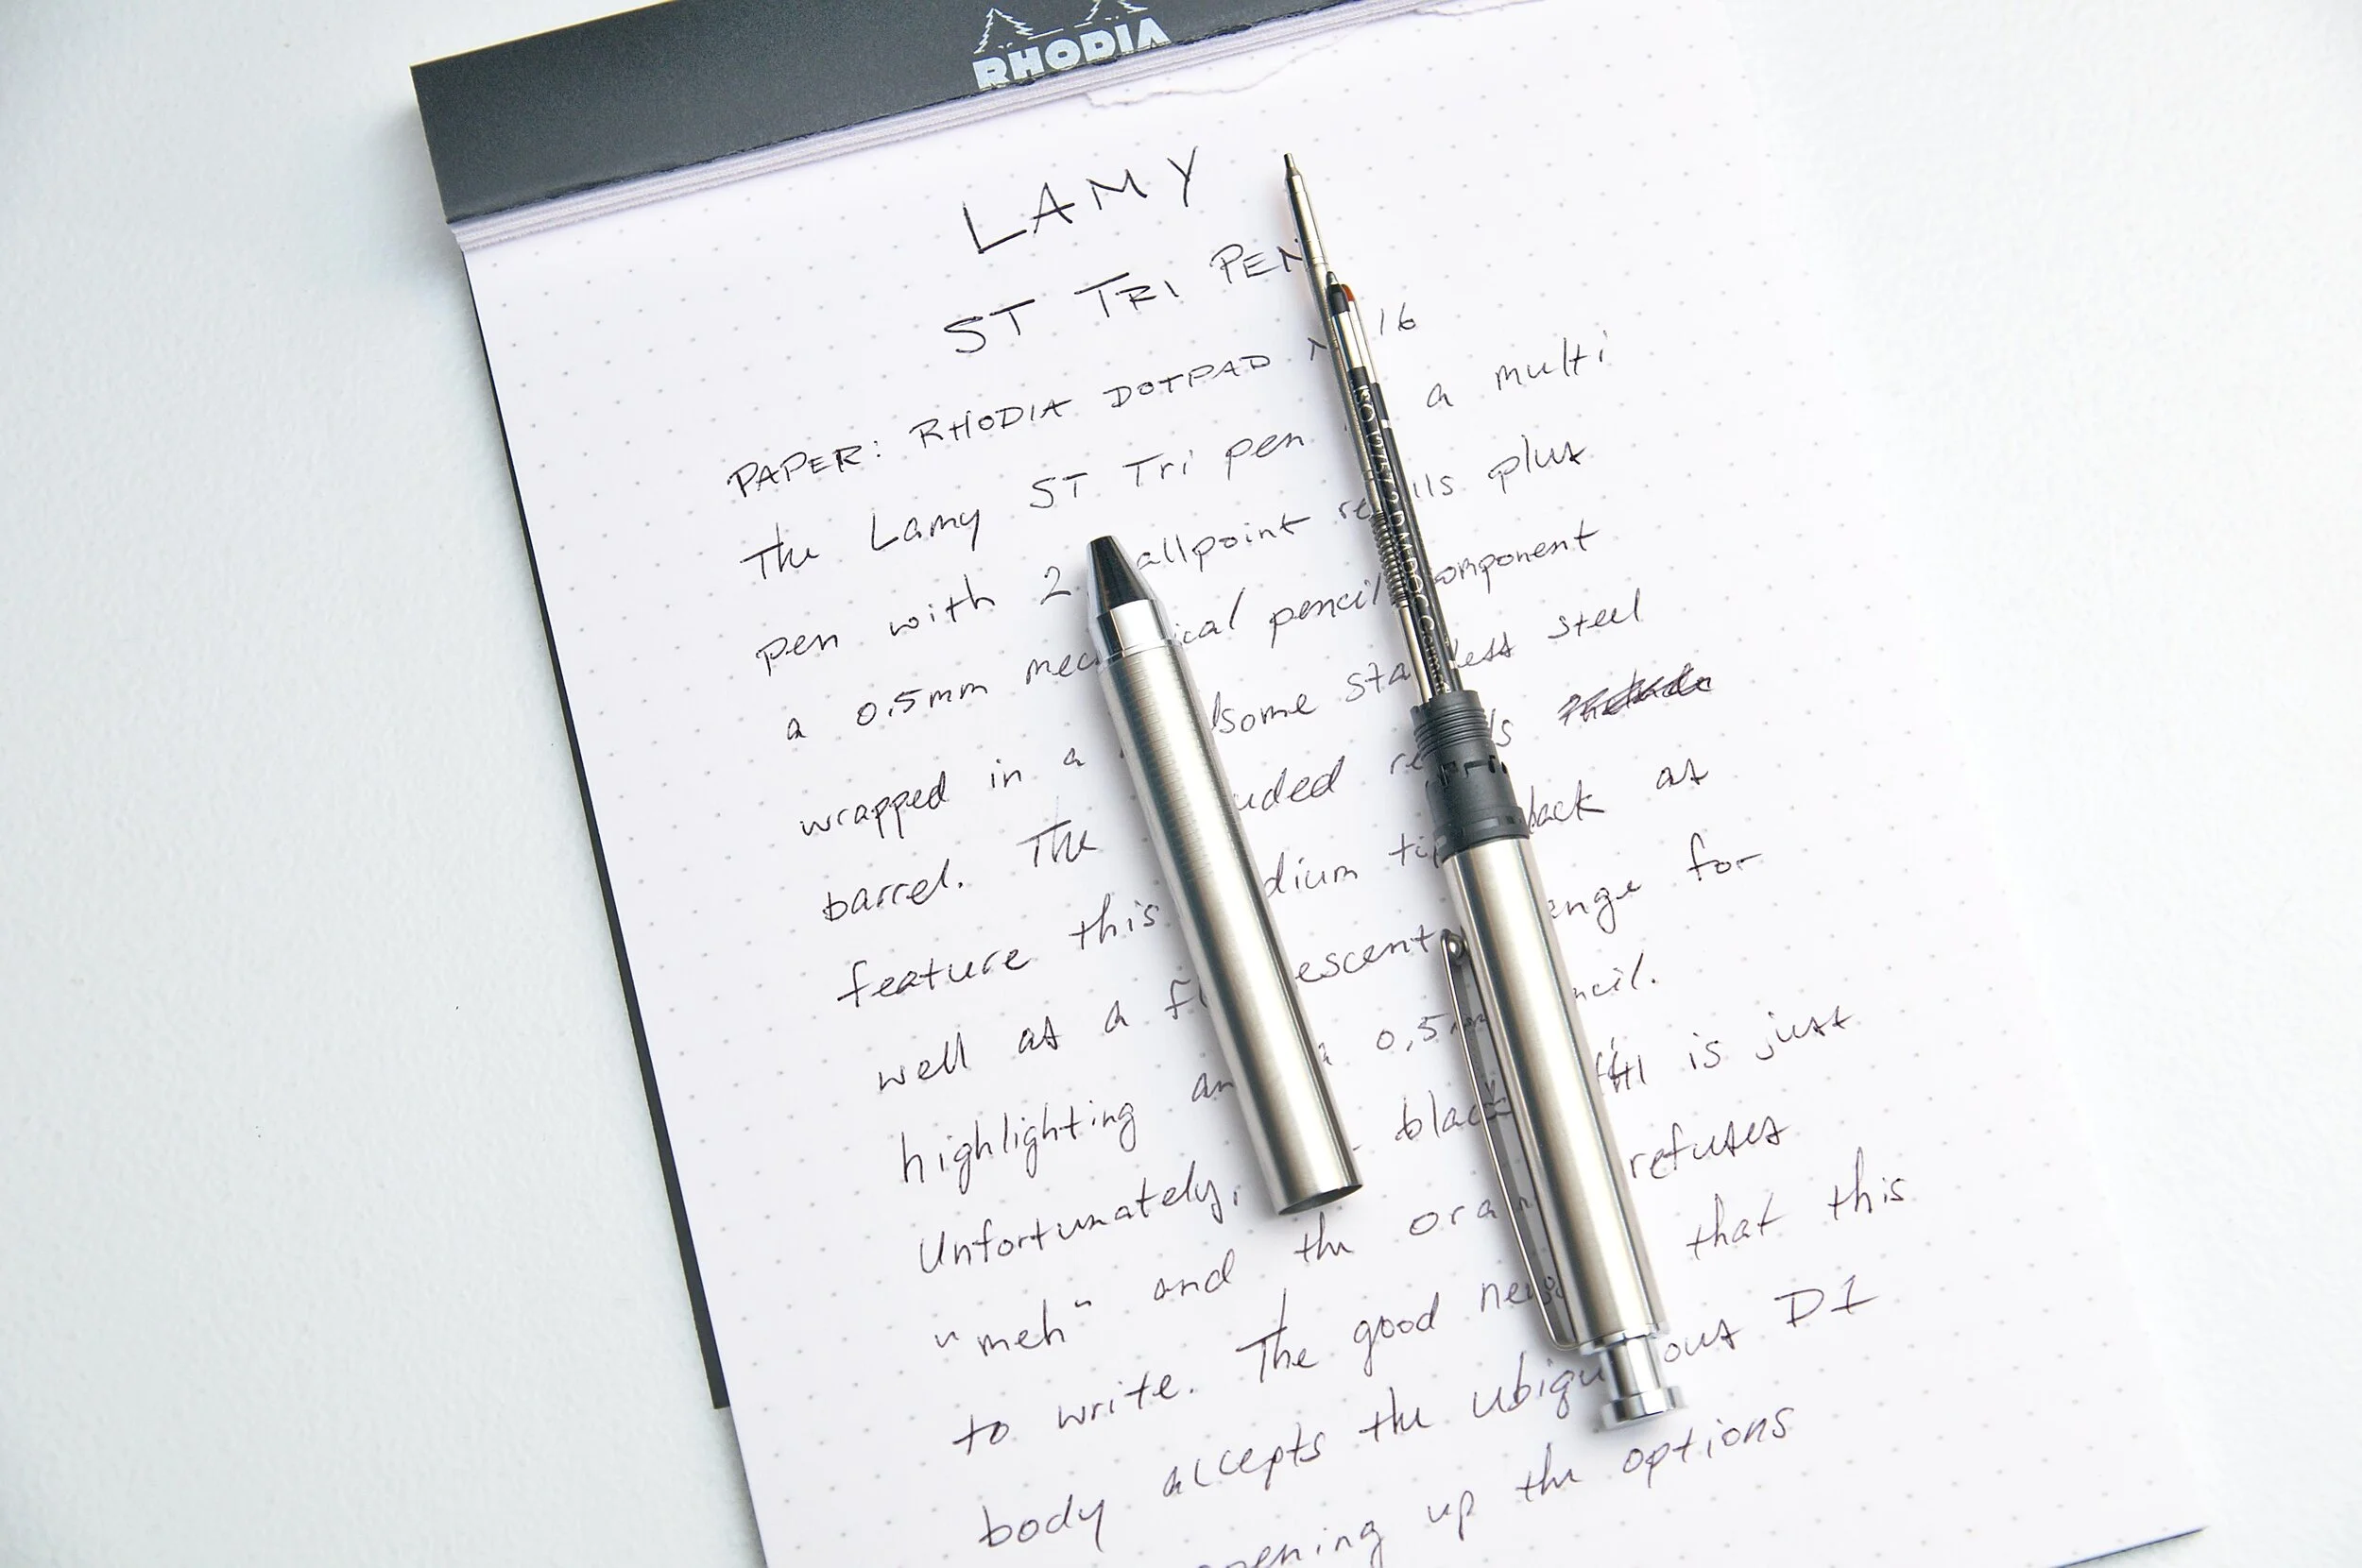 RHODIA
LAMY
ST TRI PEN
PAPER: RHODIA DOTPAD 16
The Lamy ST Tri pen a multi
pen with 2 allpoint re lls plus
a 0.5mm mec ical pencil omponent
wrapped in a some sta less steel
barrel. The uded re ls
feature this dium tip back as
well as a fl escent enge for
highlighting an 0.5m ncil.
Unfortunately, black is just
"meh" and the oran refuses
to write. The good news that this
body accepts the ubiqu ous D1
pening up the options
ISO 12757-2 D